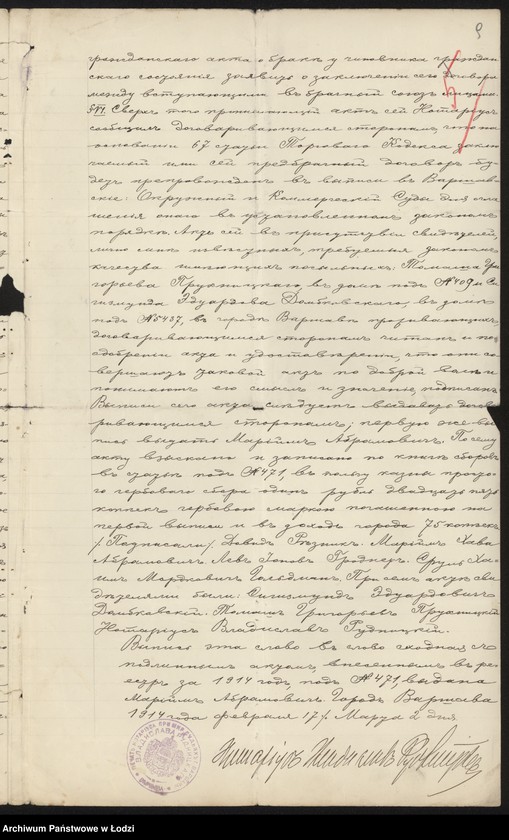 9
гражданскаго акта о бракѣ у чиновника граждан
скаго состоянія заявить о заключеніи сего договора
между вступающими въ брачный союзъ лицами.
§ VI. Сверхъ того принимающій актъ сей Нотаріусъ
сообщилъ договаривающимся сторонамъ, что на
основаніи 67 статьи Торговаго Кодекса заклю
чаемый ими сей предбрачный договоръ бу-
детъ препровожденъ въ выписи въ Варшав-
скіе: Окружный и Коммерческій Суды для огла
шенія онаго въ установленномъ закономъ
порядкѣ. Актъ сей въ присутствіи свидѣтелей,
лично мнѣ извѣстныхъ, требуемыя закономъ
качества имѣющихъ Томаша Гри
горьева Пружицкаго въ домѣ подъ № 409 и Си
гизмунда Эдуардова Домбковскаго, въ домѣ
подъ № 5437, въ городѣ Варшавѣ проживающихъ,
договаривающимся сторонамъ читанъ и по
одобреніи акта и удостовѣреніи, что они со
вершаютъ таковой актъ по доброй волѣ и
понимаютъ его смыслъ и значеніе, подписанъ
Выписи сего акта слѣдуетъ выдавать догова
ривающимся сторонамъ; первую же вы
пись выдать Маріймъ Абрамовичъ. По сему
акту взыскано и записано по книгѣ сборовъ
въ статьѣ подъ № 471, въ пользу казны просто
го гербоваго сбора одинъ рубль двадцать пять
копѣекъ гербовою маркою погашенною на
первой выписи и въ доходъ города 75 копѣекъ
/ Подписали / Давидъ Рѣзникъ. Маріймъ Хава
Абрамовичъ Левъ Гродперъ. Сруль Ха-
имъ Мордковичъ Гольдманъ. При семъ актѣ сви
дѣтелями были: Сигизмундъ Эдуардовичъ
Домбковскій. Томашъ Григорьевъ Пружицкій
Нотаріусъ Владиславъ Рудницкій.
Выпись эта слово въ слово сходная съ
подлиннымъ актомъ, внесеннымъ въ ре-
естръ за 1914 годъ, подъ № 471 выдана
Маріймъ Абрамовичъ. Городъ Варшава
1914 года февраля 17 / Марта 2 дня
Нотаріусъ
Archiwum Państwowe w Łodzi